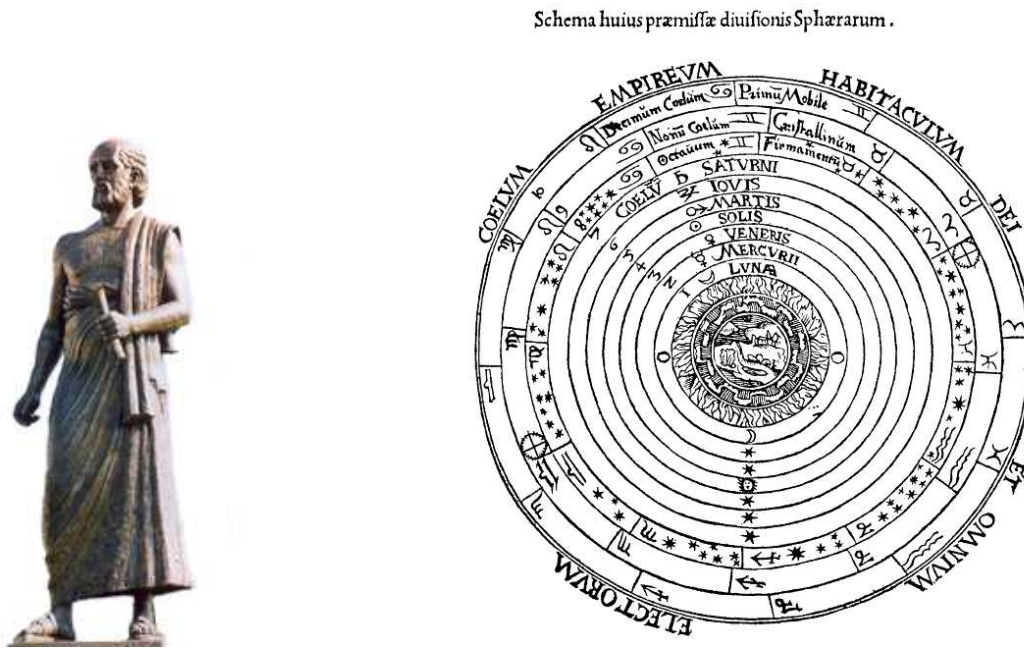 Schema huius præmiſſæ diuiſionis Sphærarum .
COELVM EMPIREVM HABITACVLVM DEI ET OMNIVM ELECTORVM
Decimum Coelum Primũ Mobile
Nonũ Coelum Criſtallinum
Octauum Firmamentũ
COELṼ SATVRNI
IOVIS
MARTIS
SOLIS
VENERIS
MERCVRII
LVNÆ